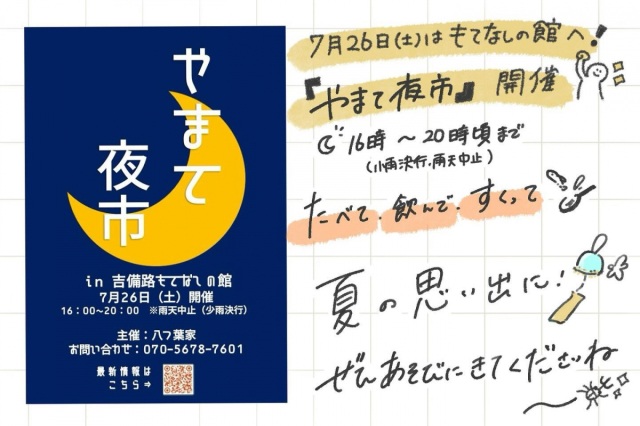 やまて
夜市
in 吉備路もてなしの館
7月26日（土）開催
16：00～20：00 ※雨天中止（少雨決行）
主催：八つ葉家
お問い合わせ：070-5678-7601
最新情報は
こちら⇒
7月26日(土)はもてなしの館へ！
『やまて夜市』開催
16時～20時頃まで
(小雨決行.雨天中止)
たべて.飲んで.すくって
夏の思い出に！
ぜひあそびにきてくださいね
～